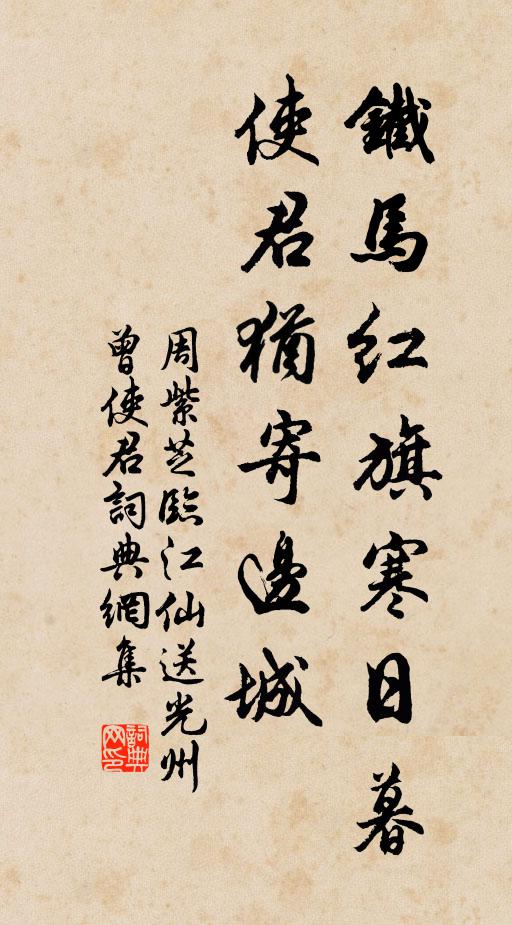 鐵馬紅旗寒日暮
使君猶寄邊城
周紫芝臨江仙送光州
曾使君詞典網集
詞典网印